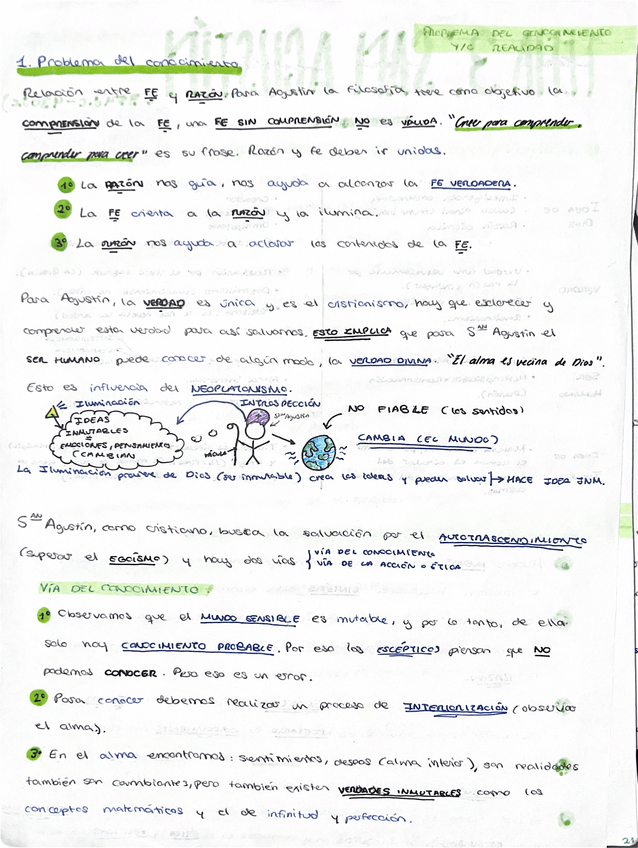 PROBLEMA DEL CONOCIMIENTO
Y/O REALIDAD
1. Problema del conocimiento
Relación entre FE y RAZÓN. Para Agustín la filosofía, tiene como objetivo la
COMPRENSIÓN de la FE, una FE SIN COMPRENSIÓN NO es VÁLIDA. "Creer para comprender,
comprender para creer" es su frase. Razón y fe deben ir unidas.
1º La RAZÓN nos guía, nos ayuda a alcanzar la FE VERDADERA.
2º La FE orienta a la RAZÓN y la ilumina.
3º La RAZÓN nos ayuda a aclarar los contenidos de la FE.
Para Agustín, la VERDAD es única y es el cristianismo, hay que esclarecer y
comprender esta verdad para así salvarnos. ESTO IMPLICA que para SAN Agustín el
SER HUMANO puede conocer de algún modo, la VERDAD DIVINA. "El alma es vecina de Dios".
Esto es influencia del NEOPLATONISMO.
Iluminación
INTROSPECCIÓN
IDEAS
INMUTABLES
EMOCIONES, PENSAMIENTOS
(CAMBIAN
San Agustín
NO FIABLE (los sentidos)
CAMBIA (EL MUNDO)
La Iluminación proviene de Dios (ser inmutable) crea las ideas y pueden salvar → HACE IDEA INM.
SAN Agustín, como cristiano, busca la salvación por el AUTOTRASCENDIMIENTO
(superar el EGOÍSMO) y hay dos vías { VÍA DEL CONOCIMIENTO
VÍA DE LA ACCIÓN O ÉTICA
VÍA DEL CONOCIMIENTO:
1º Observamos que el MUNDO SENSIBLE es mutable, y por lo tanto, de ella
solo hay CONOCIMIENTO PROBABLE. Por eso los ESCÉPTICOS piensan que NO
podemos CONOCER. Pero eso es un error.
2º Para conocer debemos realizar un proceso de INTERIORIZACIÓN (observar
el alma).
3º En el alma encontramos: sientimientos, deseos (alma interior), son realidades
también son cambiantes, pero también existen VERDADES INMUTABLES como los
conceptos matemáticos y el de infinitud y perfección.
21